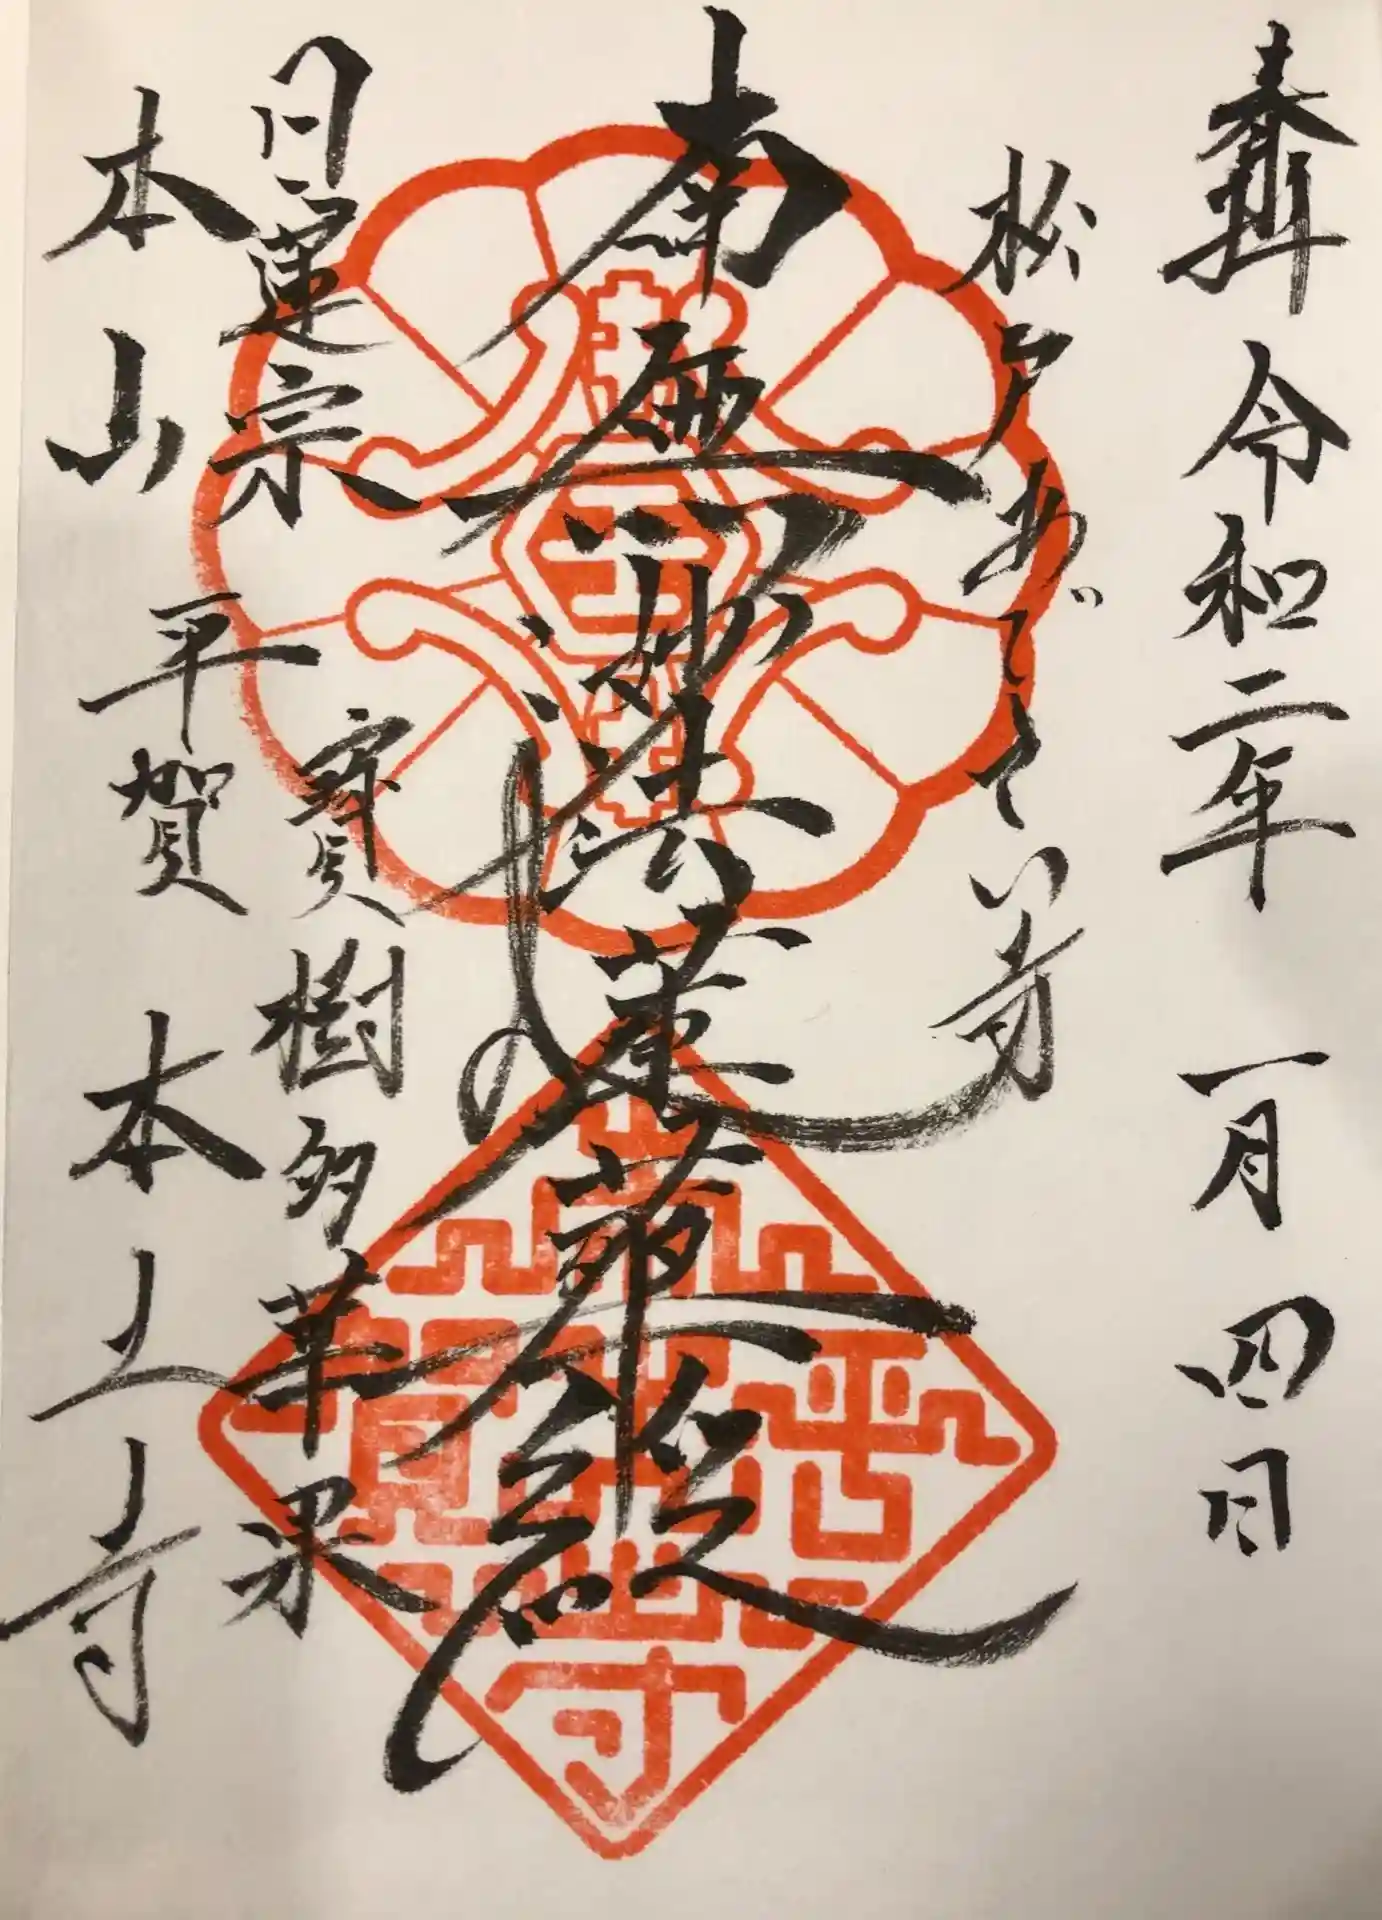 奉拝 令和二年 一月 四日
松戸あじさい寺
南無妙法蓮華経
寶樹多華果
日蓮宗
本山 平賀 本土寺
平賀
本土寺